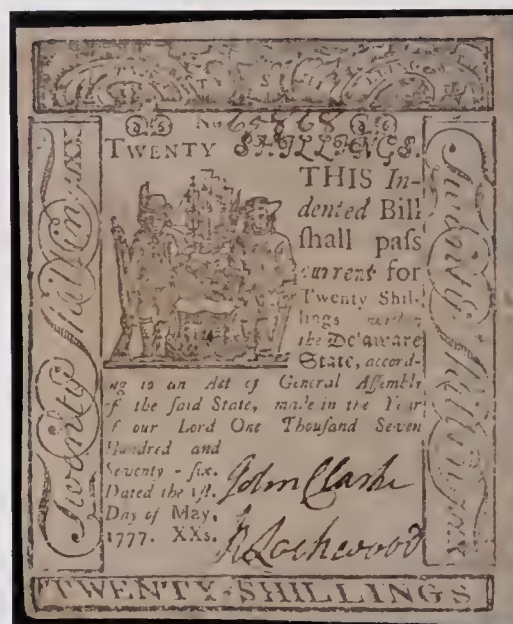 TWENTY SHILLINGS
20 S No 65868 20 S
TWENTY SHILLINGS.
THIS In-
dented Bill
ſhall paſs
current for
Twenty Shil-
lings within
the Delaware
State, accord-
ing to an Act of General Aſſembly
of the ſaid State, made in the Year
of our Lord One Thouſand Seven
Hundred and
Seventy-ſix.
Dated the 1ſt.
Day of May,
1777. XXs.
John Clarke
R Lockwood
Twenty Shillin. XX
Twenty Shillin. XX
TWENTY-SHILLINGS